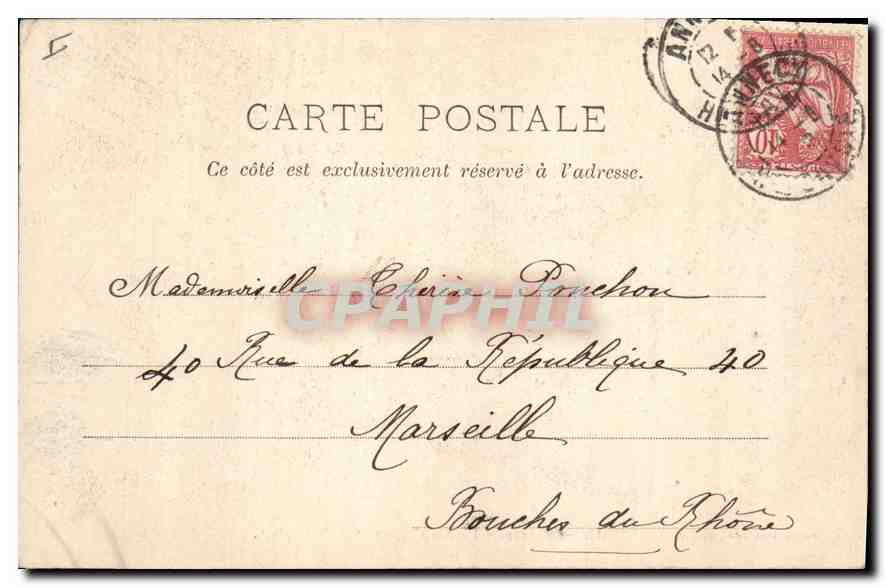 CARTE POSTALE
Ce côté est exclusivement réservé à l'adresse.
ANNECY
10
Mademoiselle Thérèse Ponchon
CPAPHIL
40 Rue de la République 40
Marseille
Bouches du Rhône